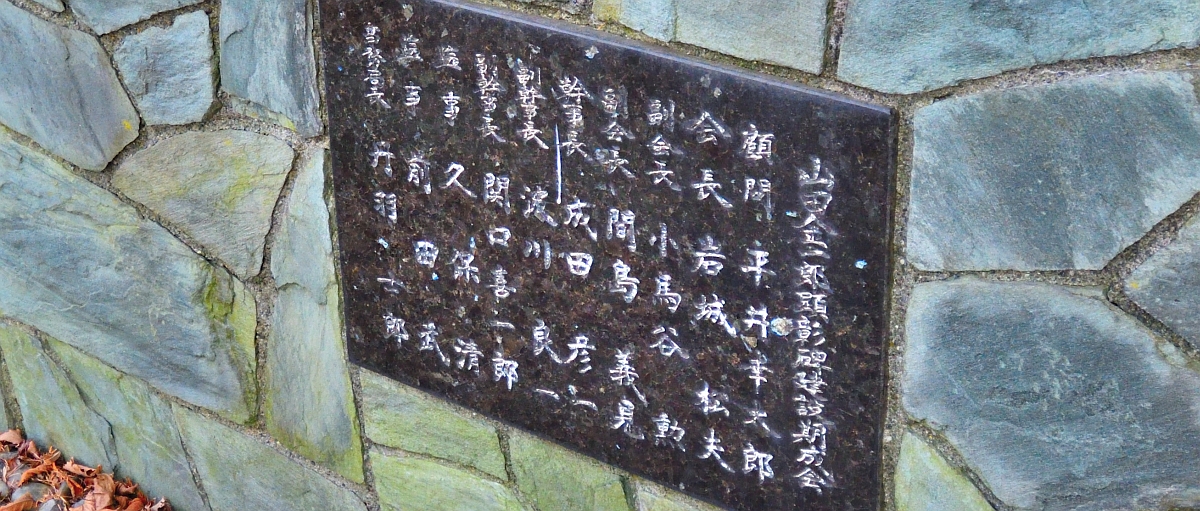 山田金二郎顕彰碑建設期成会
顧問 平井幸太郎
会長 岩城松夫
副会長 小馬谷勲
副会長 間島義晃
幹事長 成田彦二
副幹事長 渡川良一
副幹事長 関口喜一郎
監事 久保清
監事 前田武
事務局長 丹羽 士郎